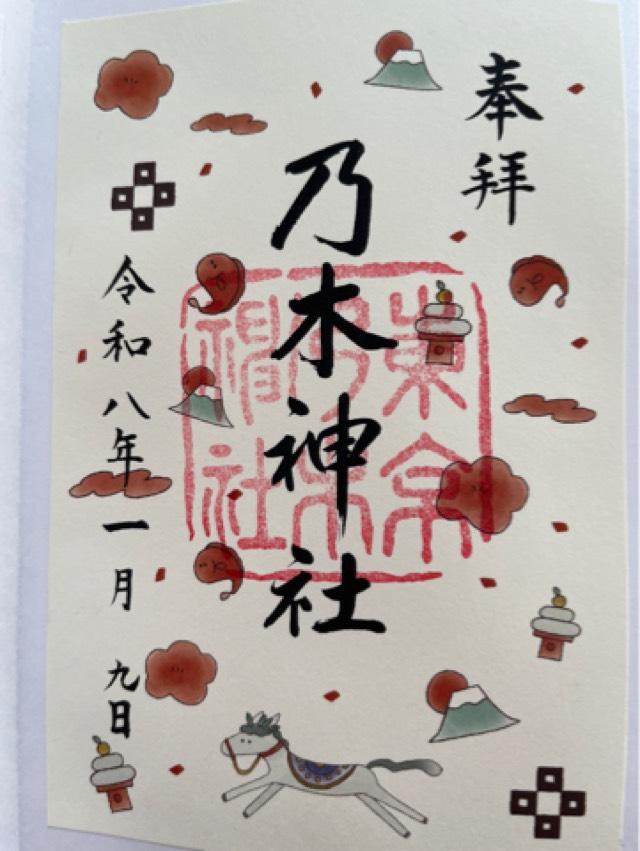 奉拝
乃木神社
令和八年一月九日
東京
乃木
神社